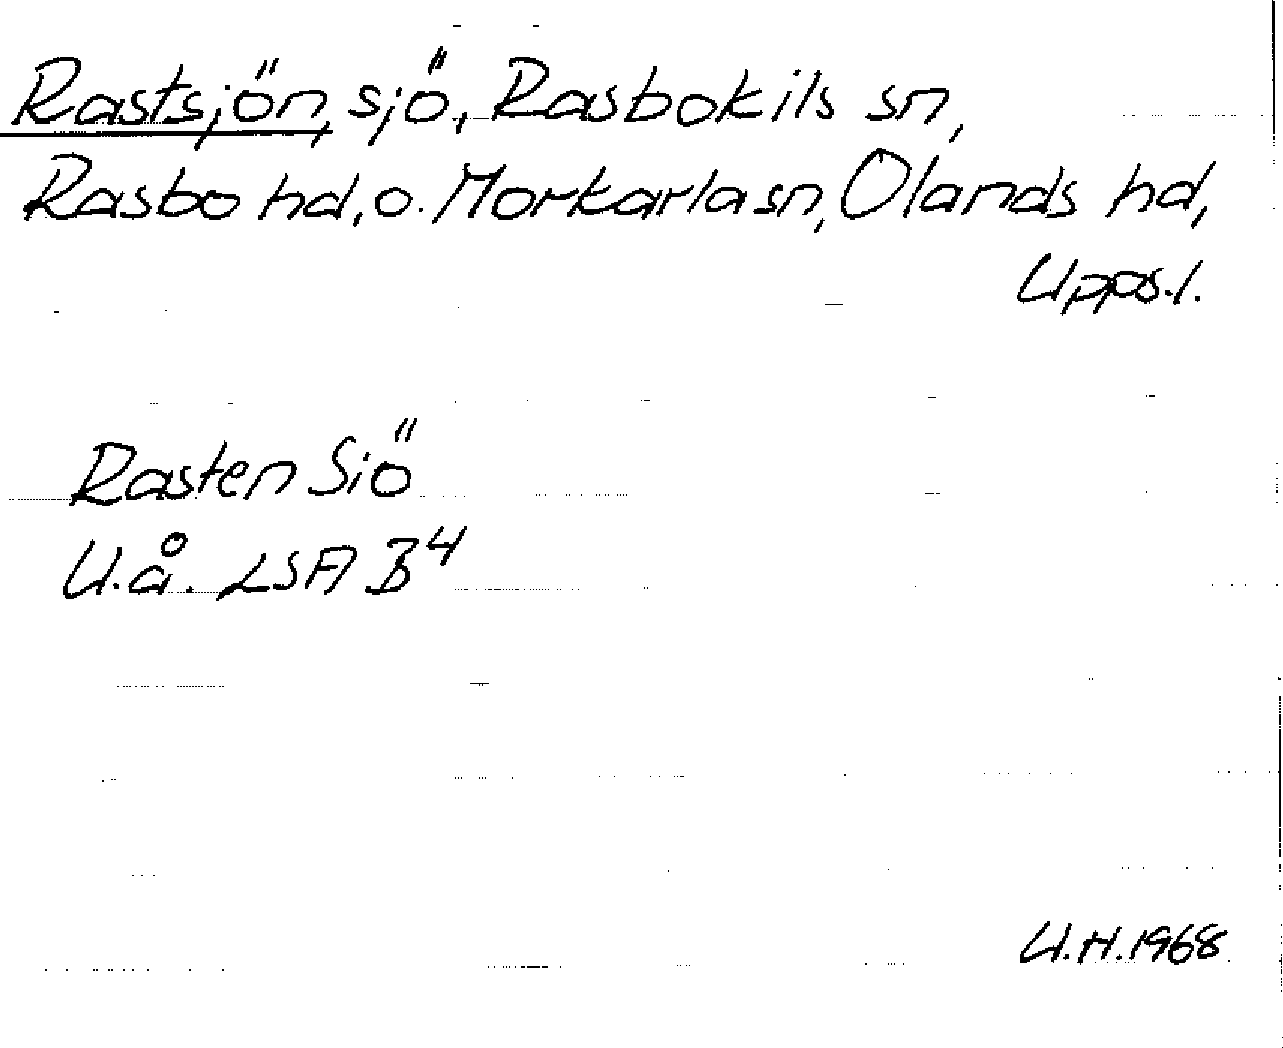 Rastsjön, sjö, Rasbokils sn,
Rasbo hd, o. Morkarla sn, Olands hd,
Upps.l.
Rasten Siö
U.å. LSA B⁴
U.H.1968